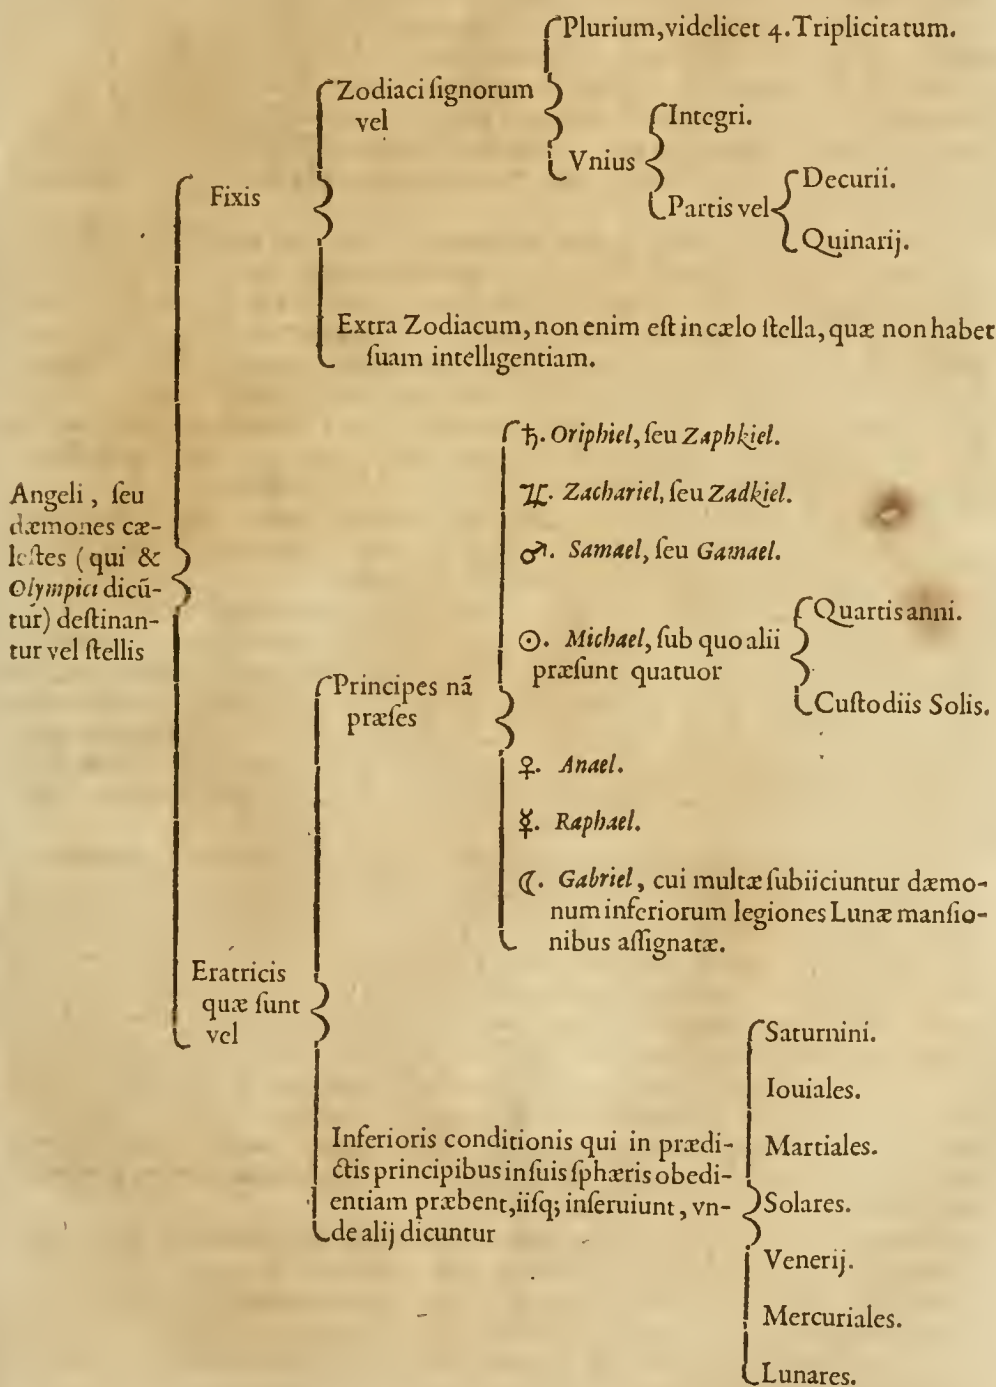 Angeli, ſeu
dæmones cæ-
leſtes (qui &
Olympici dicũ-
tur) deſtinan-
tur vel ſtellis
Fixis
Zodiaci ſignorum
vel
Plurium, videlicet 4. Triplicitatum.
Vnius
Integri.
Partis vel
Decurii.
Quinarij.
Extra Zodiacum, non enim eſt in cælo ſtella, quæ non habet
ſuam intelligentiam.
Eratricis
quæ ſunt
vel
Principes nã
præſes
♄. Oriphiel, ſeu Zaphkiel.
♃. Zachariel, ſeu Zadkiel.
♂. Samael, ſeu Gamael.
☉. Michael, ſub quo alii
præſunt quatuor
Quartis anni.
Cuſtodiis Solis.
♀. Anael.
☿. Raphael.
☾. Gabriel, cui multæ ſubiiciuntur dæmo-
num inferiorum legiones Lunæ manſio-
nibus aſſignatæ.
Inferioris conditionis qui in prædi-
ctis principibus in ſuis ſphæris obedi-
entiam præbent, iiſq; inſeruiunt, vn-
de alij dicuntur
Saturnini.
Iouiales.
Martiales.
Solares.
Venerij.
Mercuriales.
Lunares.